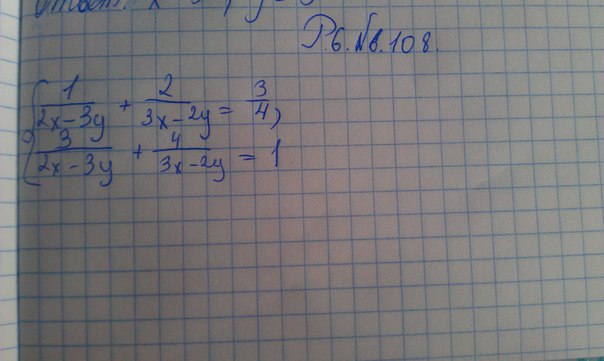 Р.6.№6.108.
{ 1/(2x-3y) + 2/(3x-2y) = 3/4,
3/(2x-3y) + 4/(3x-2y) = 1